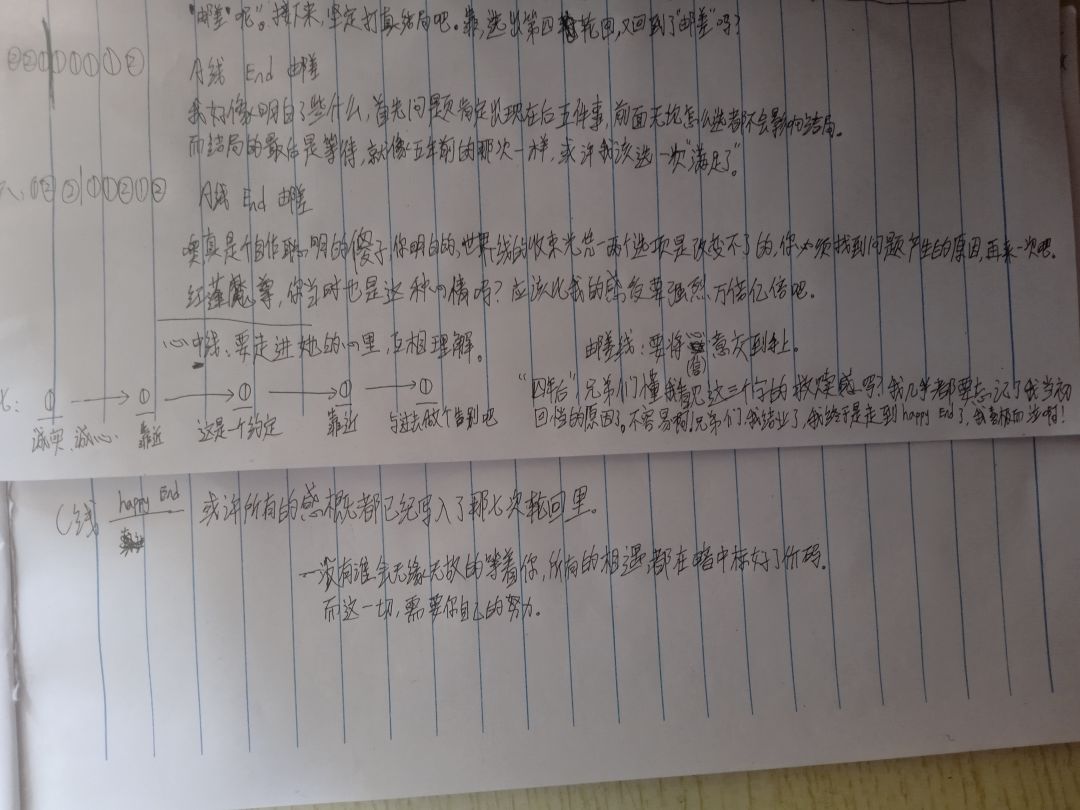 "邮差"呢"。接下来,坚定打真结局吧。靠,选出第四轮回,又回到了"邮差"吗?
②②①①①①①② A线 End 邮差
我好像明白了些什么,首先问题肯定出现在后五件事,前面无论怎么选都不会影响结局。
而结局的最后是等待,就像五年前的那次一样,或许我该选一次"满足了"。
六、①②②①①②①② A线 End 邮差
噢真是个自作聪明的傻子,你明白的,世界线的收束光凭一两个选项是改变不了的,你必须找到问题产生的原因,再来一次吧。
红莲魔尊,你当时也是这种心情吗?应该比我的感受要强烈万倍亿倍吧。
心中线:要走进她的心里,互相理解。 邮差线:要将意交到手上。
(信)
七: ① → ① → ① → ① → ①
诚实、诚心 靠近 这是一个约定 靠近 与过去做个告别吧
"四年后"兄弟们懂我看见这三个字的救赎感吗?我几乎都要忘记了我当初
回档的原因了。不容易啊,兄弟们,我结业了,我终于是走到happy End了,我喜极而泣啊!
C线 happy End 或许所有的感概都已经写入了那七次轮回里。
一没有谁会无缘无故的等着你,所有的相遇都在暗中标好了价码。
而这一切,需要你自己的努力。